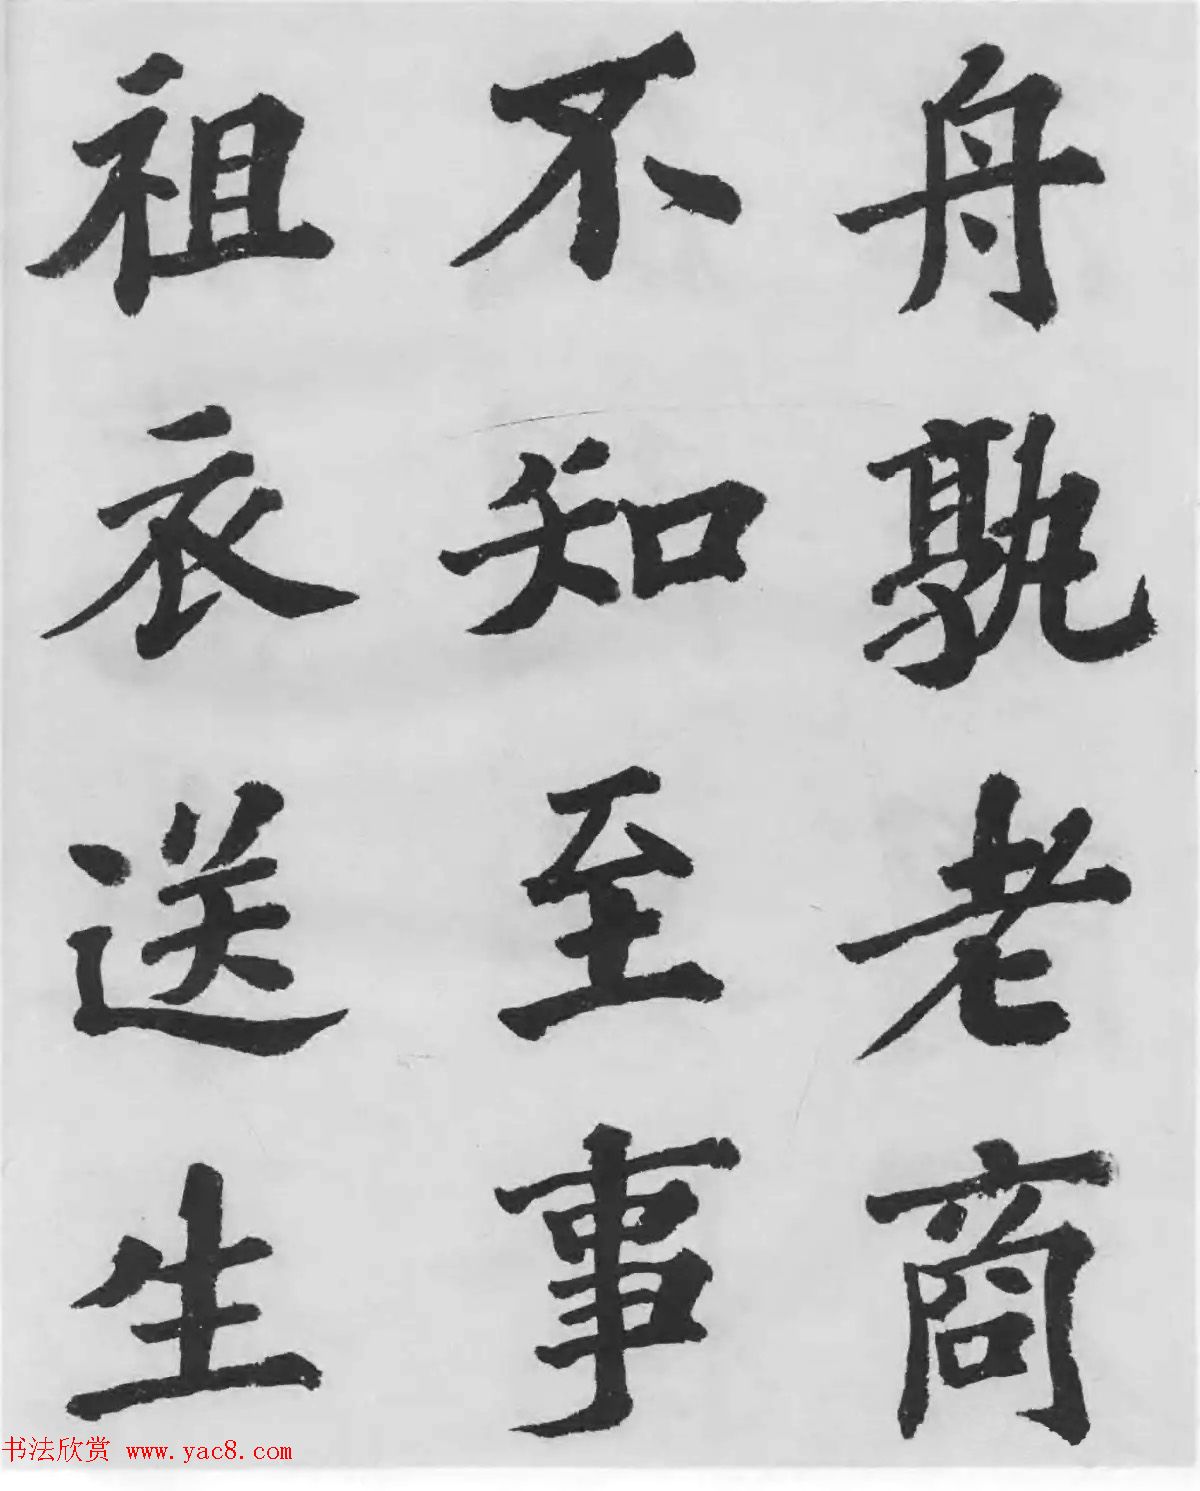 舟孰老商
不知至事
祖衣送生
书法欣赏 www.yac8.com